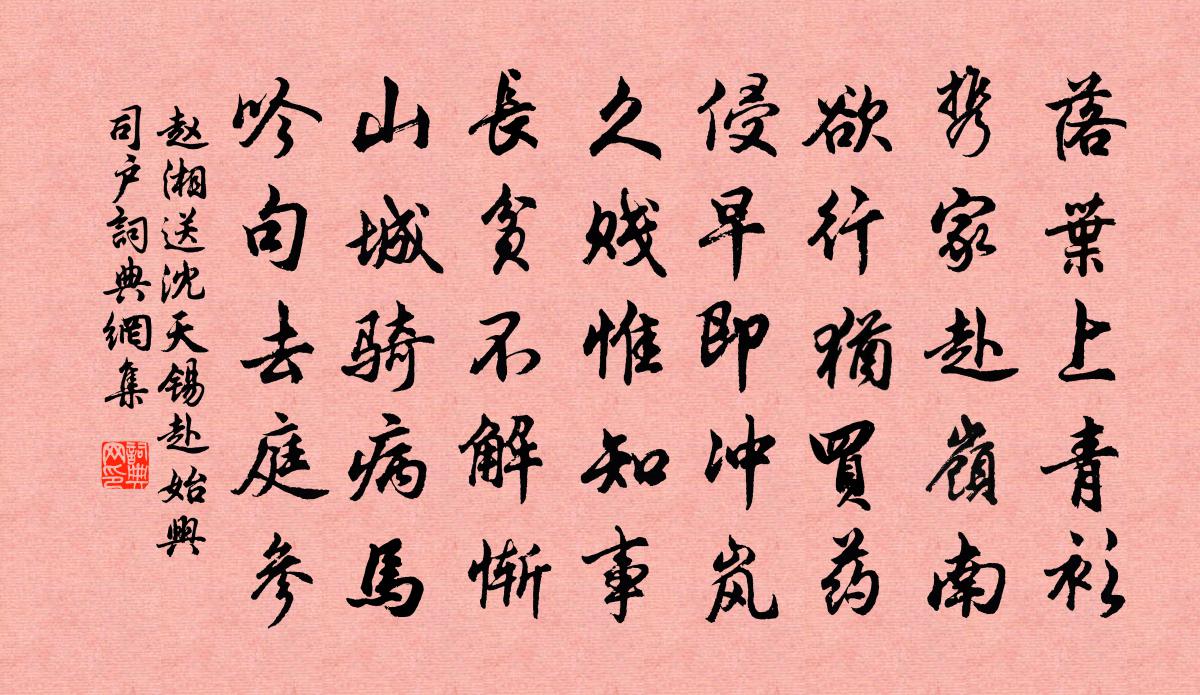 落葉上青衫
携家赴嶺南
欲行猶買药
侵早即冲岚
久贱惟知事
長贫不解惭
山城骑病馬
吟句去庭參
赵湘送沈天锡赴始興
司户詞典網集
詞典网印